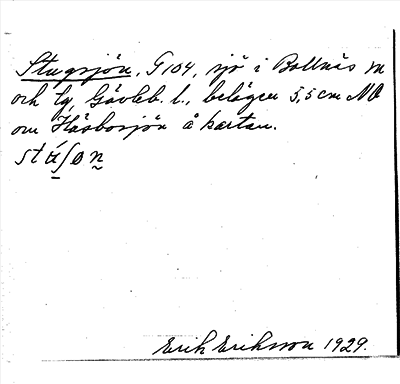 Stugsjön, G 104, sjö i Bollnäs sn
och tg, Gävleb. l., belägen 3,5 cm NO
om Häsbosjön å kartan.
Erik Eriksson 1929.